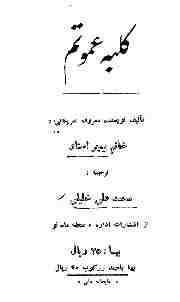 کلبه عمو تم
تألیف نویسنده معروف امریکائی:
خانم بیچر استو
ترجمه:
محمد علی خلیلی
از انتشارات اداره مجله ماه نو
بها: ۲۵ ریال
بها با جلد زرکوب ۴۰ ریال